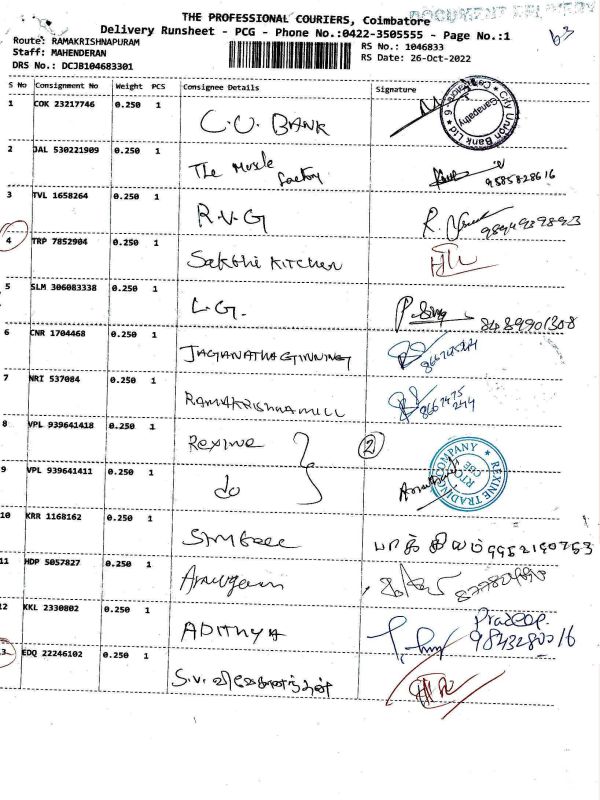 DOCUMENT DELIVERY
THE PROFESSIONAL COURIERS, Coimbatore
Delivery Runsheet - PCG - Phone No.:0422-3505555 - Page No.:1
63
Route: RAMAKRISHNAPURAM
RS No.: 1046833
Staff: MAHENDERAN
RS Date: 26-Oct-2022
DRS No.: DCJB104683301
S No Consignment No Weight PCS Consignee Details Signature
1 COK 23217746 0.250 1 C.U. BANK
City Union Bank Ltd Ganapathy
2 JAL 530221909 0.250 1 The Muscle
factory
9585828616
3 TVL 1658264 0.250 1 R.V.G R.
4 TRP 7852904 0.250 1 Sakthi KITCHEN
5 SLM 306083338 0.250 1 L.G. 8489901308
6 CNR 1704468 0.250 1 JAGANATHA GINNING
7 NRI 537084 0.250 1 RAMAKRISHNA MILL
8667475
244
8 VPL 939641418 0.250 1 Rexine 2
9 VPL 939641411 0.250 1 do
REXINE TRADING COMPANY
10 KRR 1168162 0.250 1 9952190753
11 HDP 5057827 0.250 1 Arulgam
12 KKL 2330802 0.250 1 ADITHYA Pradeep.
9843280016
13 EDQ 22246102 0.250 1 S.V.